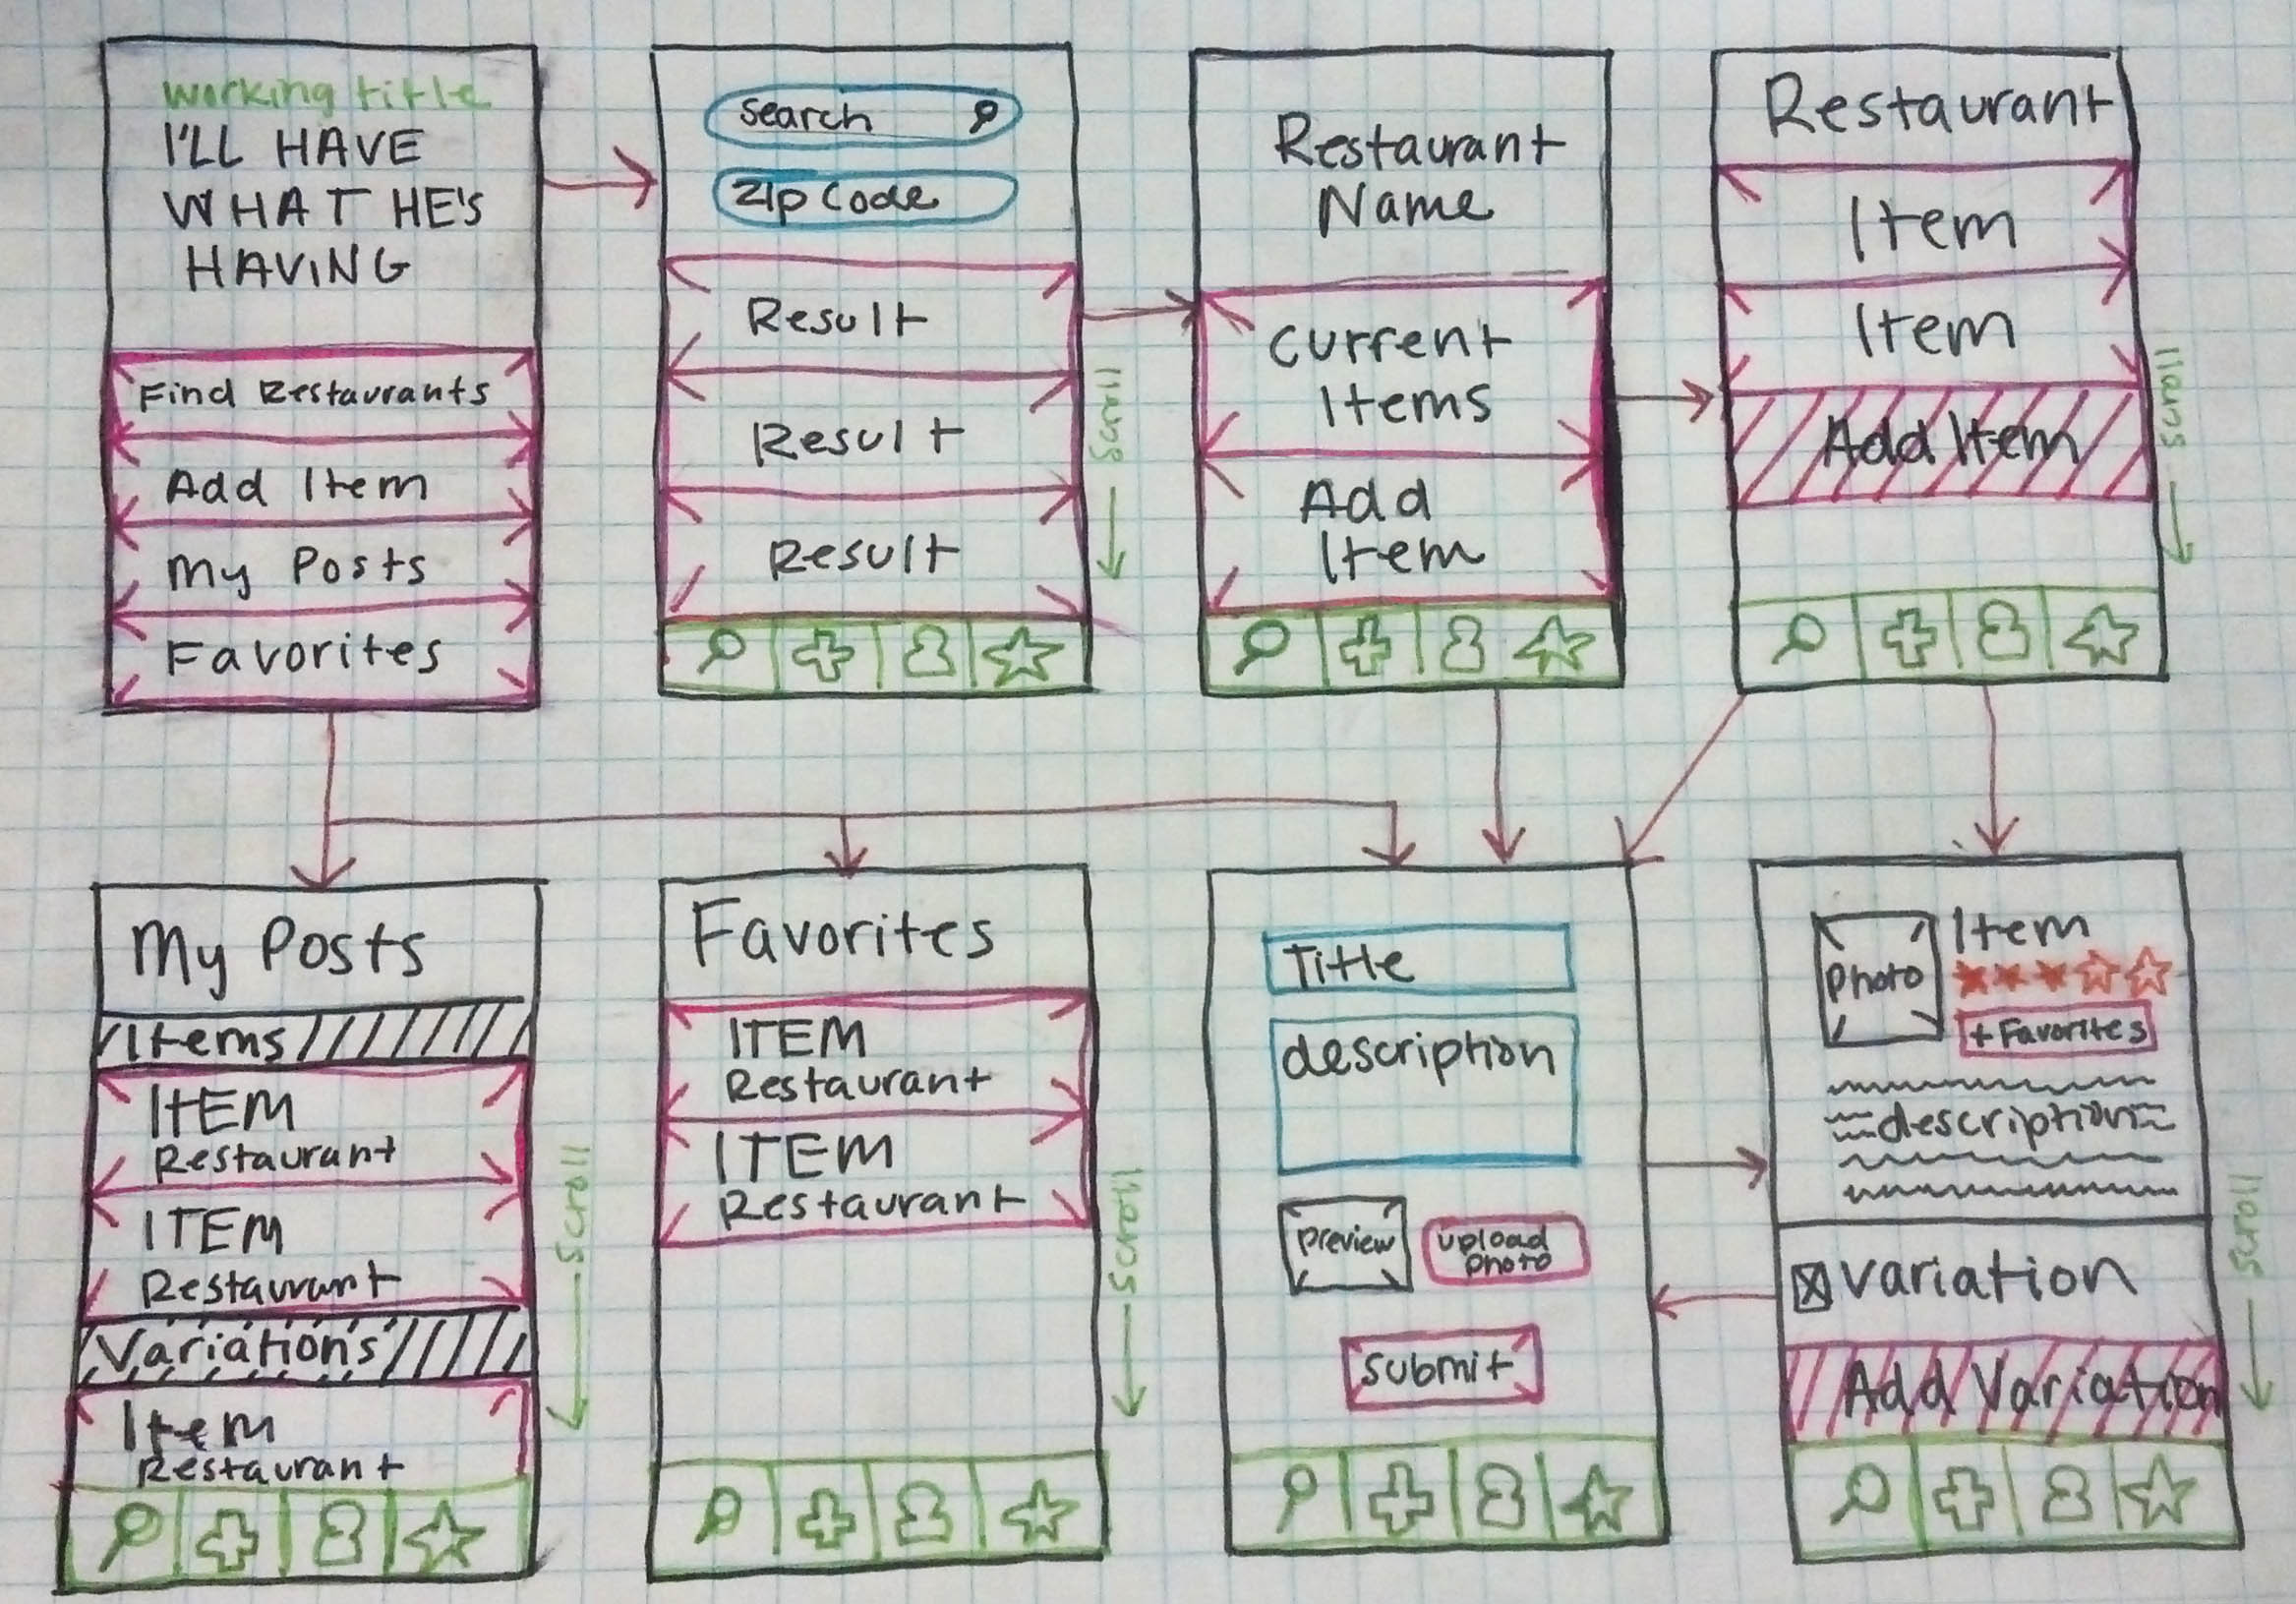 working title
I'LL HAVE
WHAT HE'S
HAVING
Find Restaurants
Add Item
My Posts
Favorites
search
Zip Code
Result
Result
Result
scroll
Restaurant
Name
Current
Items
Add
Item
Restaurant
Item
Item
Add Item
scroll
My Posts
Items
ITEM
Restaurant
ITEM
Restaurant
Variations
Item
Restaurant
scroll
Favorites
ITEM
Restaurant
ITEM
Restaurant
scroll
Title
description
preview
upload
photo
submit
photo
Item
+ Favorites
description
variation
Add Variation
scroll